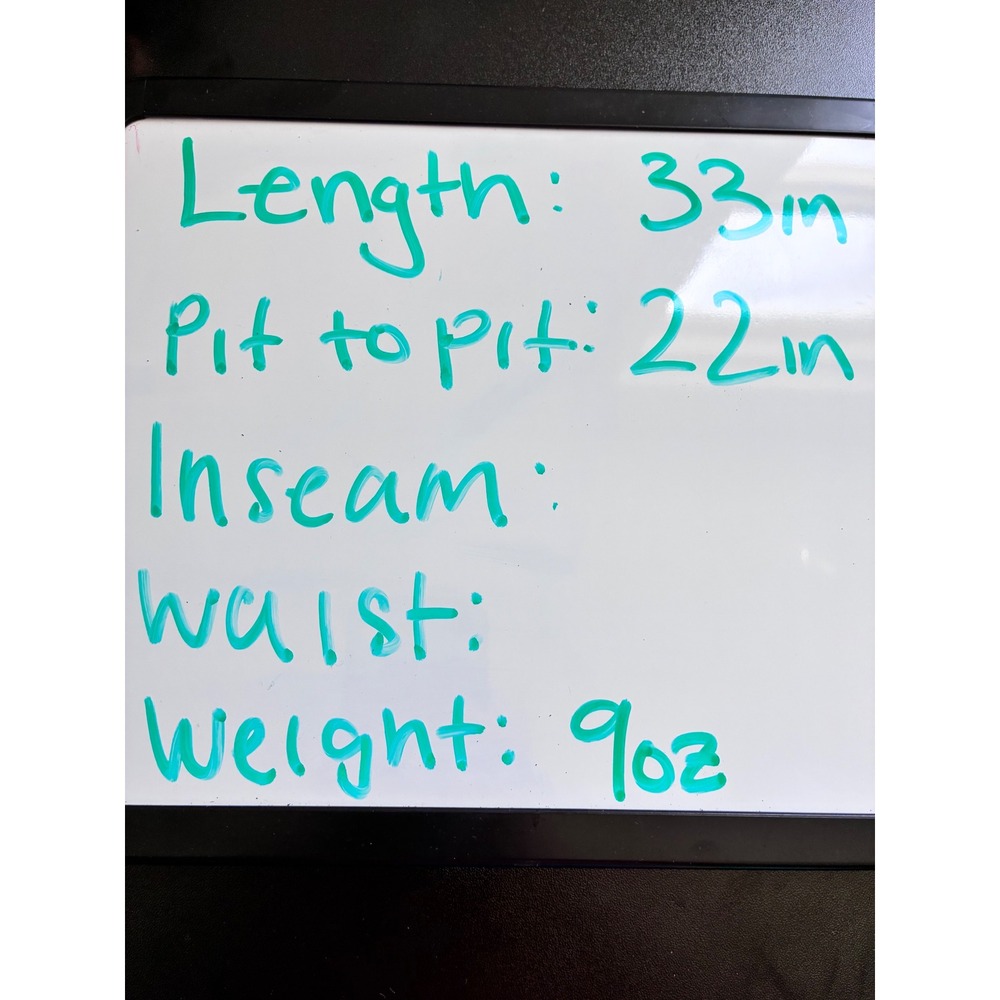 Length: 33in
Pit to pit: 22in
Inseam:
Waist:
Weight: 9oz